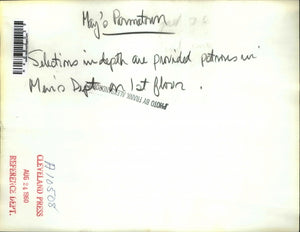 May's Parmatown
Selections in depth are provided patrons in
Men's Dept on 1st floor.
PHOTO BY FRANK ALEKSANDROWICZ
A10508
CLEVELAND PRESS
AUG 24 1960
REFERENCE DEPT.